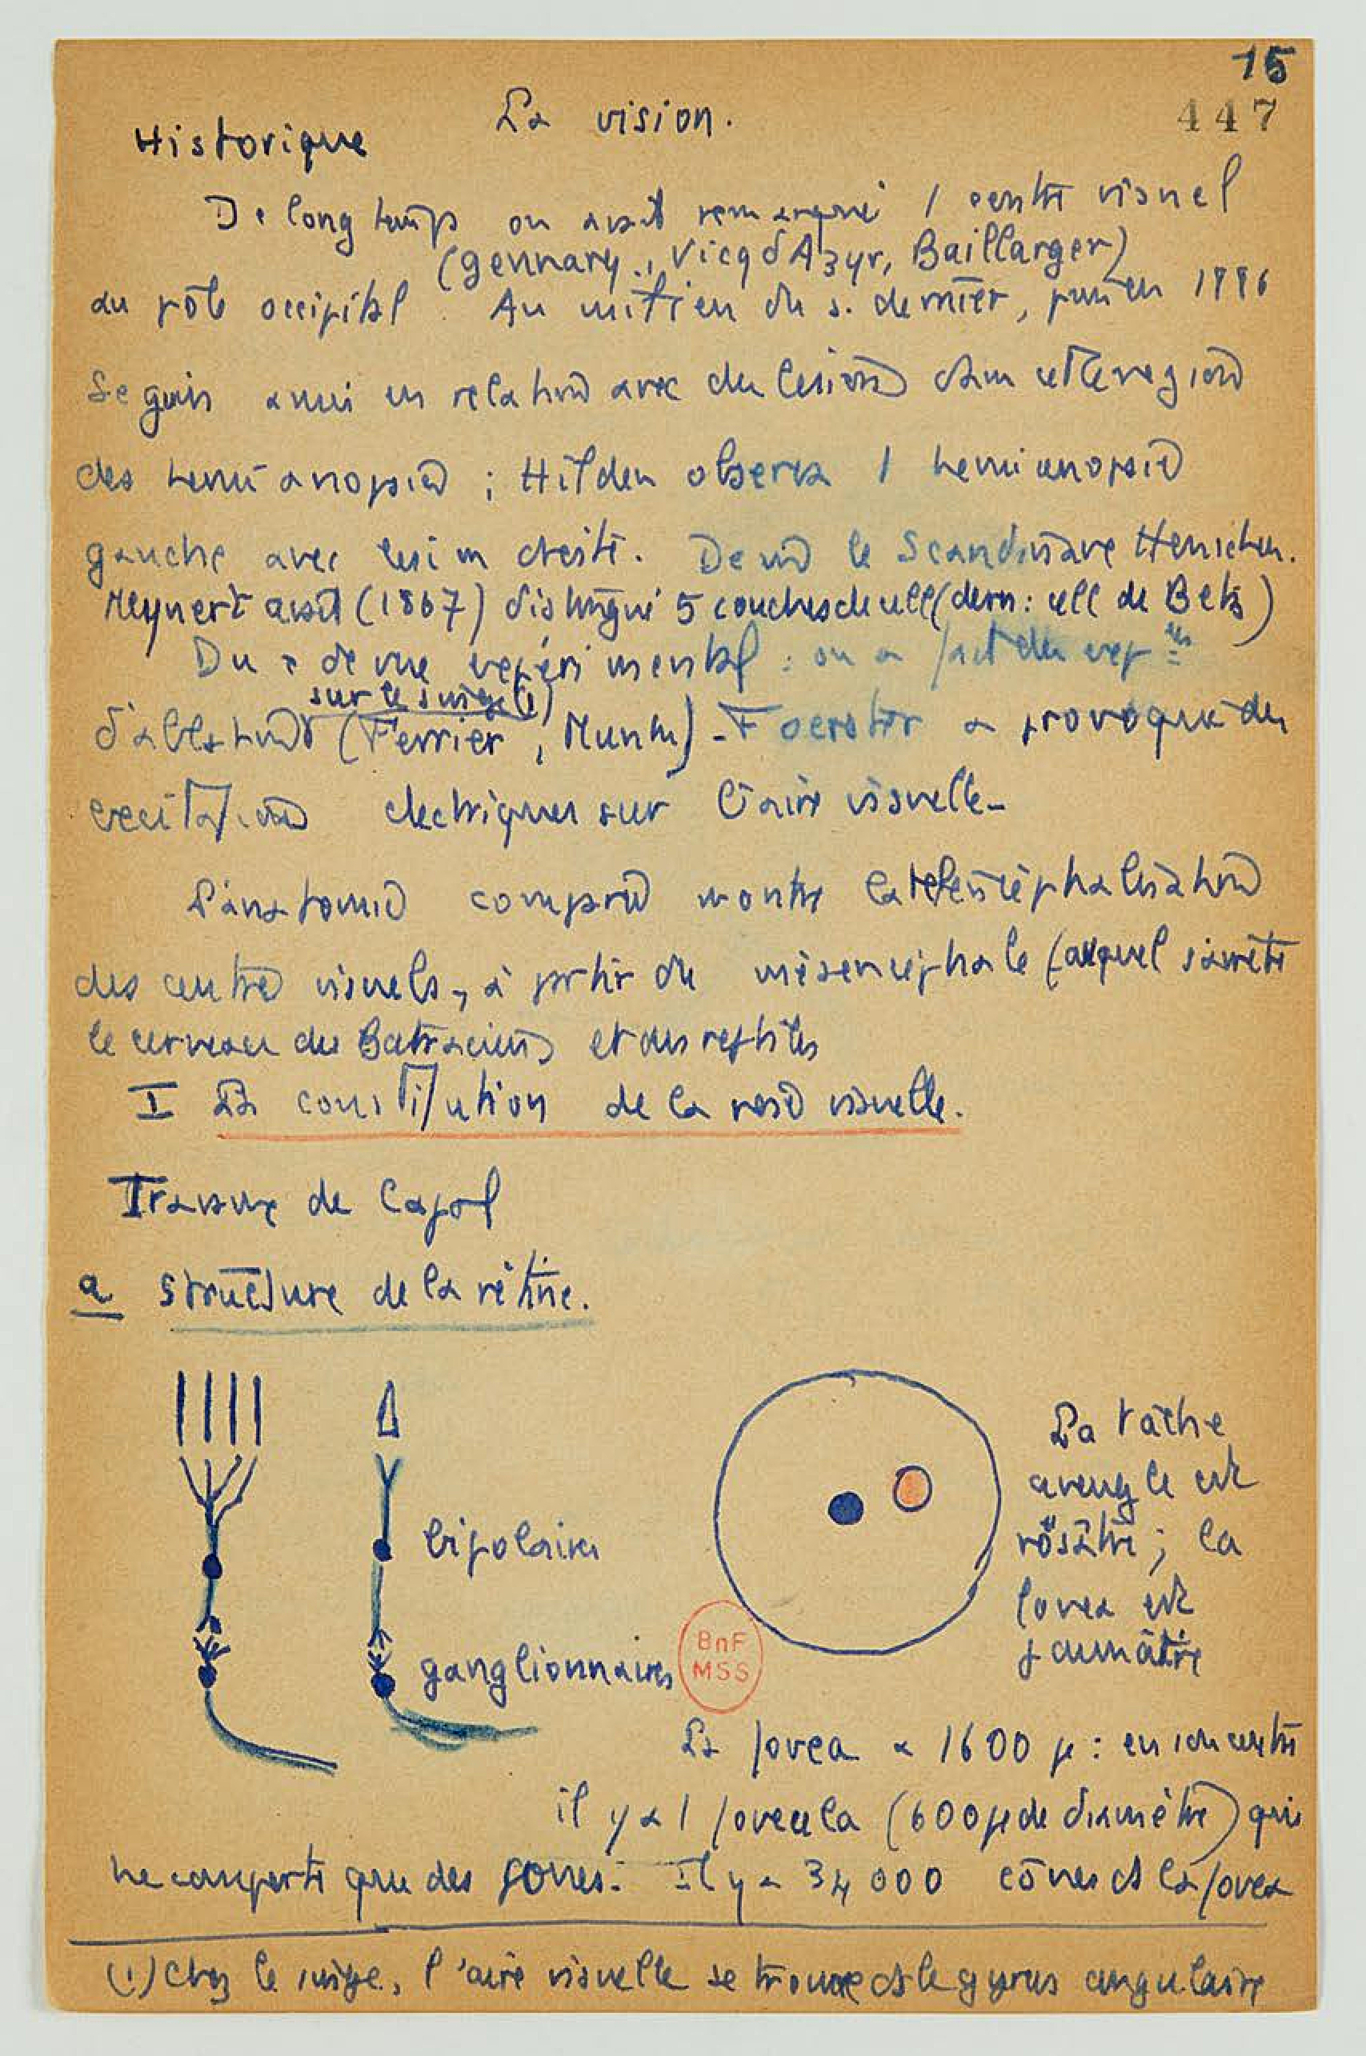 15
447
La vision.
Historique
De longtemps on avait remarqué 1 centre visuel
(gennary., Vicq d'Azyr, Baillarger)
au pôle occipital. Au milieu du s. dernier, puis en 1886
Seguin a mis en relation avec des lésions dans cette région
des hémianopsie ; Hilden observa 1 hémianopsie
gauche avec lésion droite. De m le Scandinave Henschen.
Meynert avait (1867) distingué 5 couches de cell (dern: cell de Betz)
Du . de vue expérimental : on a fait des exp ces
sur le singe (1)
d'ablation (Ferrier, Munk) - Foerster a provoqué des
excitations électriques sur l'aire visuelle -
L'anatomie comparée montre la télencéphalisation
des centres visuels, à partir du mésencéphale (auquel s'arrête
le cerveau des Batraciens et des reptiles
I La constitution de la voie visuelle.
Travaux de Cajal
a structure de la rétine.
La tache
aveugle est
rosâtre ; la
fovea est
jaunâtre
bipolaires
ganglionnaires
BnF
MSS
La fovea a 1600 µ : en son centre
il y a 1 foveola (600 µ de diamètre) qui
ne comporte que des cones. Il y a 34 000 cônes ds la fovea
(1) Chez le singe, l'aire visuelle se trouve ds le gyrus angulaire